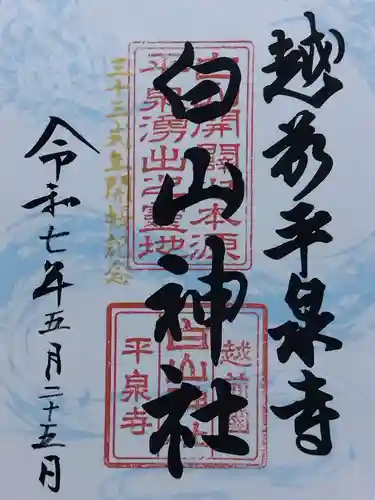 越前平泉寺
白山神社
三十三式年開帳記念
令和七年五月二十五日
白山開闢之本源
平泉湧出之靈地
越前國
白山神社
平泉寺